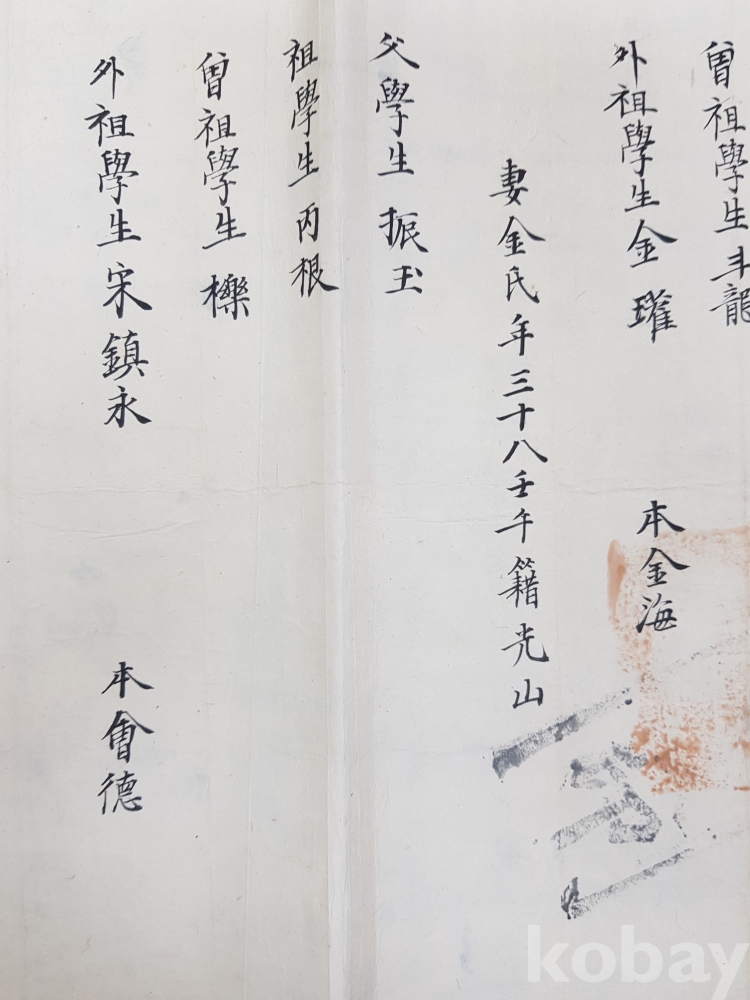 曾祖學生斗龍
外祖學生金瓘 本金海
妻金氏年三十八壬午籍光山
父學生振玉
祖學生丙根
曾祖學生櫟
外祖學生宋鎮永 本會德
kobay